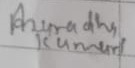 Anuradha
Kumari